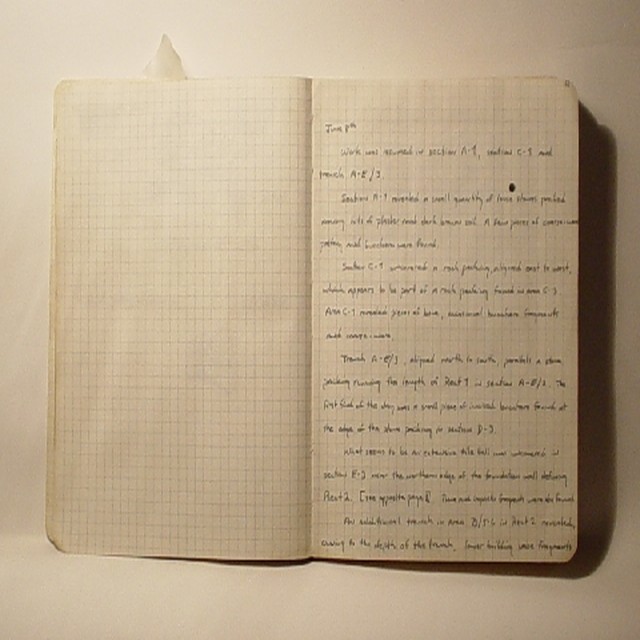 June 8th
Work was resumed in section A-1, section C-1 and
trench A-E/3.
Section A-1 revealed a small quantity of stones packed
among bits of plaster and dark brown soil. A few pieces of coarse-ware
pottery and were found.
Section C-1 a rock packing, aligned east to west,
which appears to be part of a rock packing found in area C-3.
Area C-1 revealed pieces of bone, occasional fragments
and coarse-ware.
Trench A-E/3, aligned north to south, parallels a stone
packing running the length of Rect 1 in section A-E/2. The
first find of the day was a small piece of incised found at
the edge of the stone packing in section D-3.
What seems to be an extensive tile fall was uncovered in
section E-3 near the northern edge of the foundation wall defining
Rect 2. [see opposite page]. fragments were also found
An additional trench in area D/5-6 in Rect 2 revealed,
owing to the depth of the trench, lower building fragments